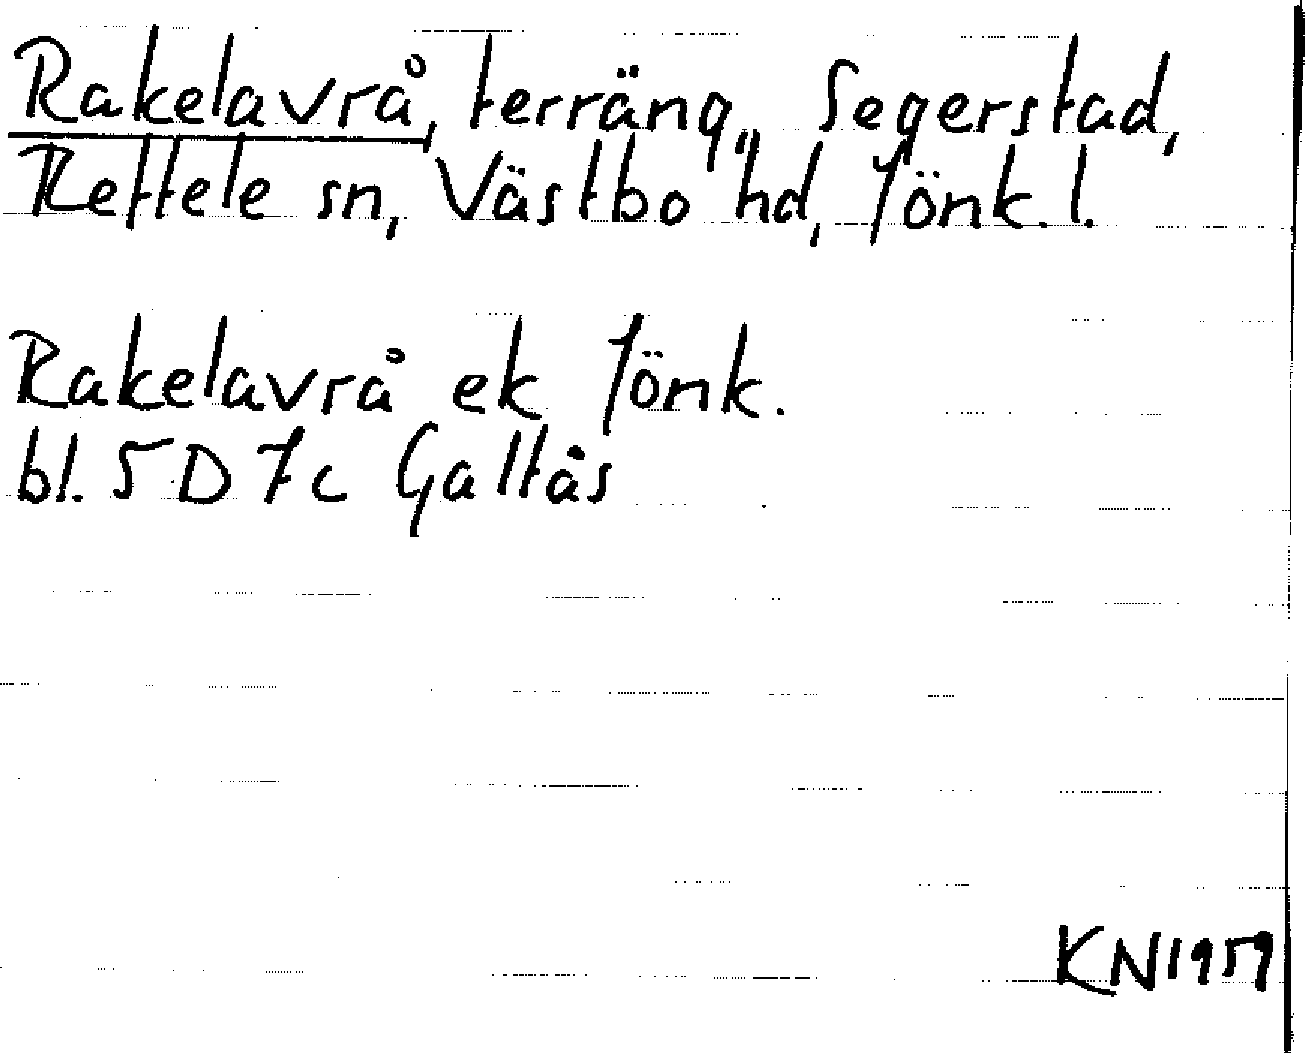 Rakelavrå, terräng, Segerstad,
Reftele sn, Västbo hd, Jönk. l.
Rakelavrå ek Jönk.
bl. 5D 7c Galtås
KN1959